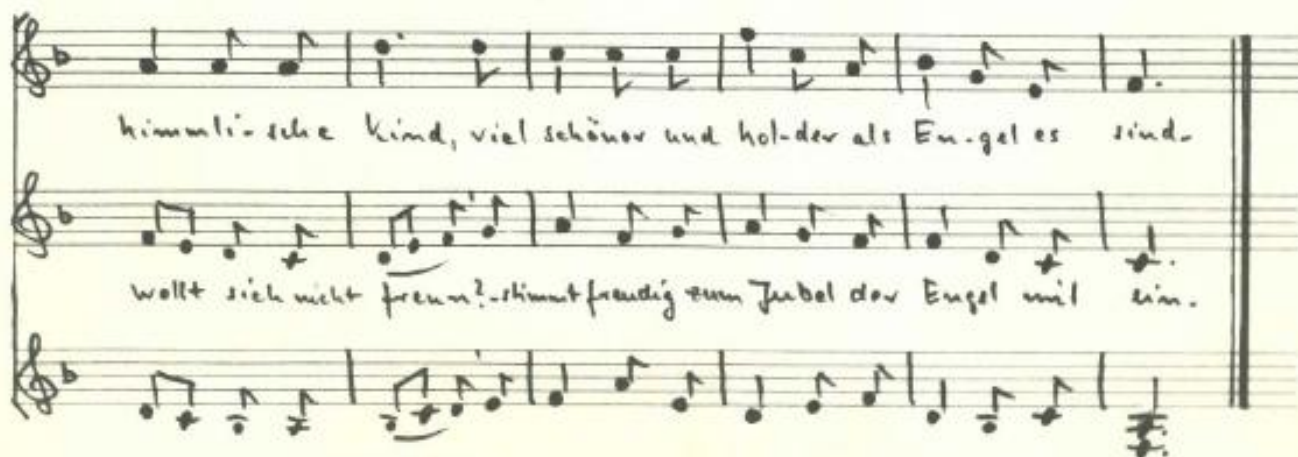 himmli-sche Kind, viel schöner und hol-der als En-gel es sind.
wollt sich nicht freun?-stimmt freudig zum Jubel der Engel mit ein.